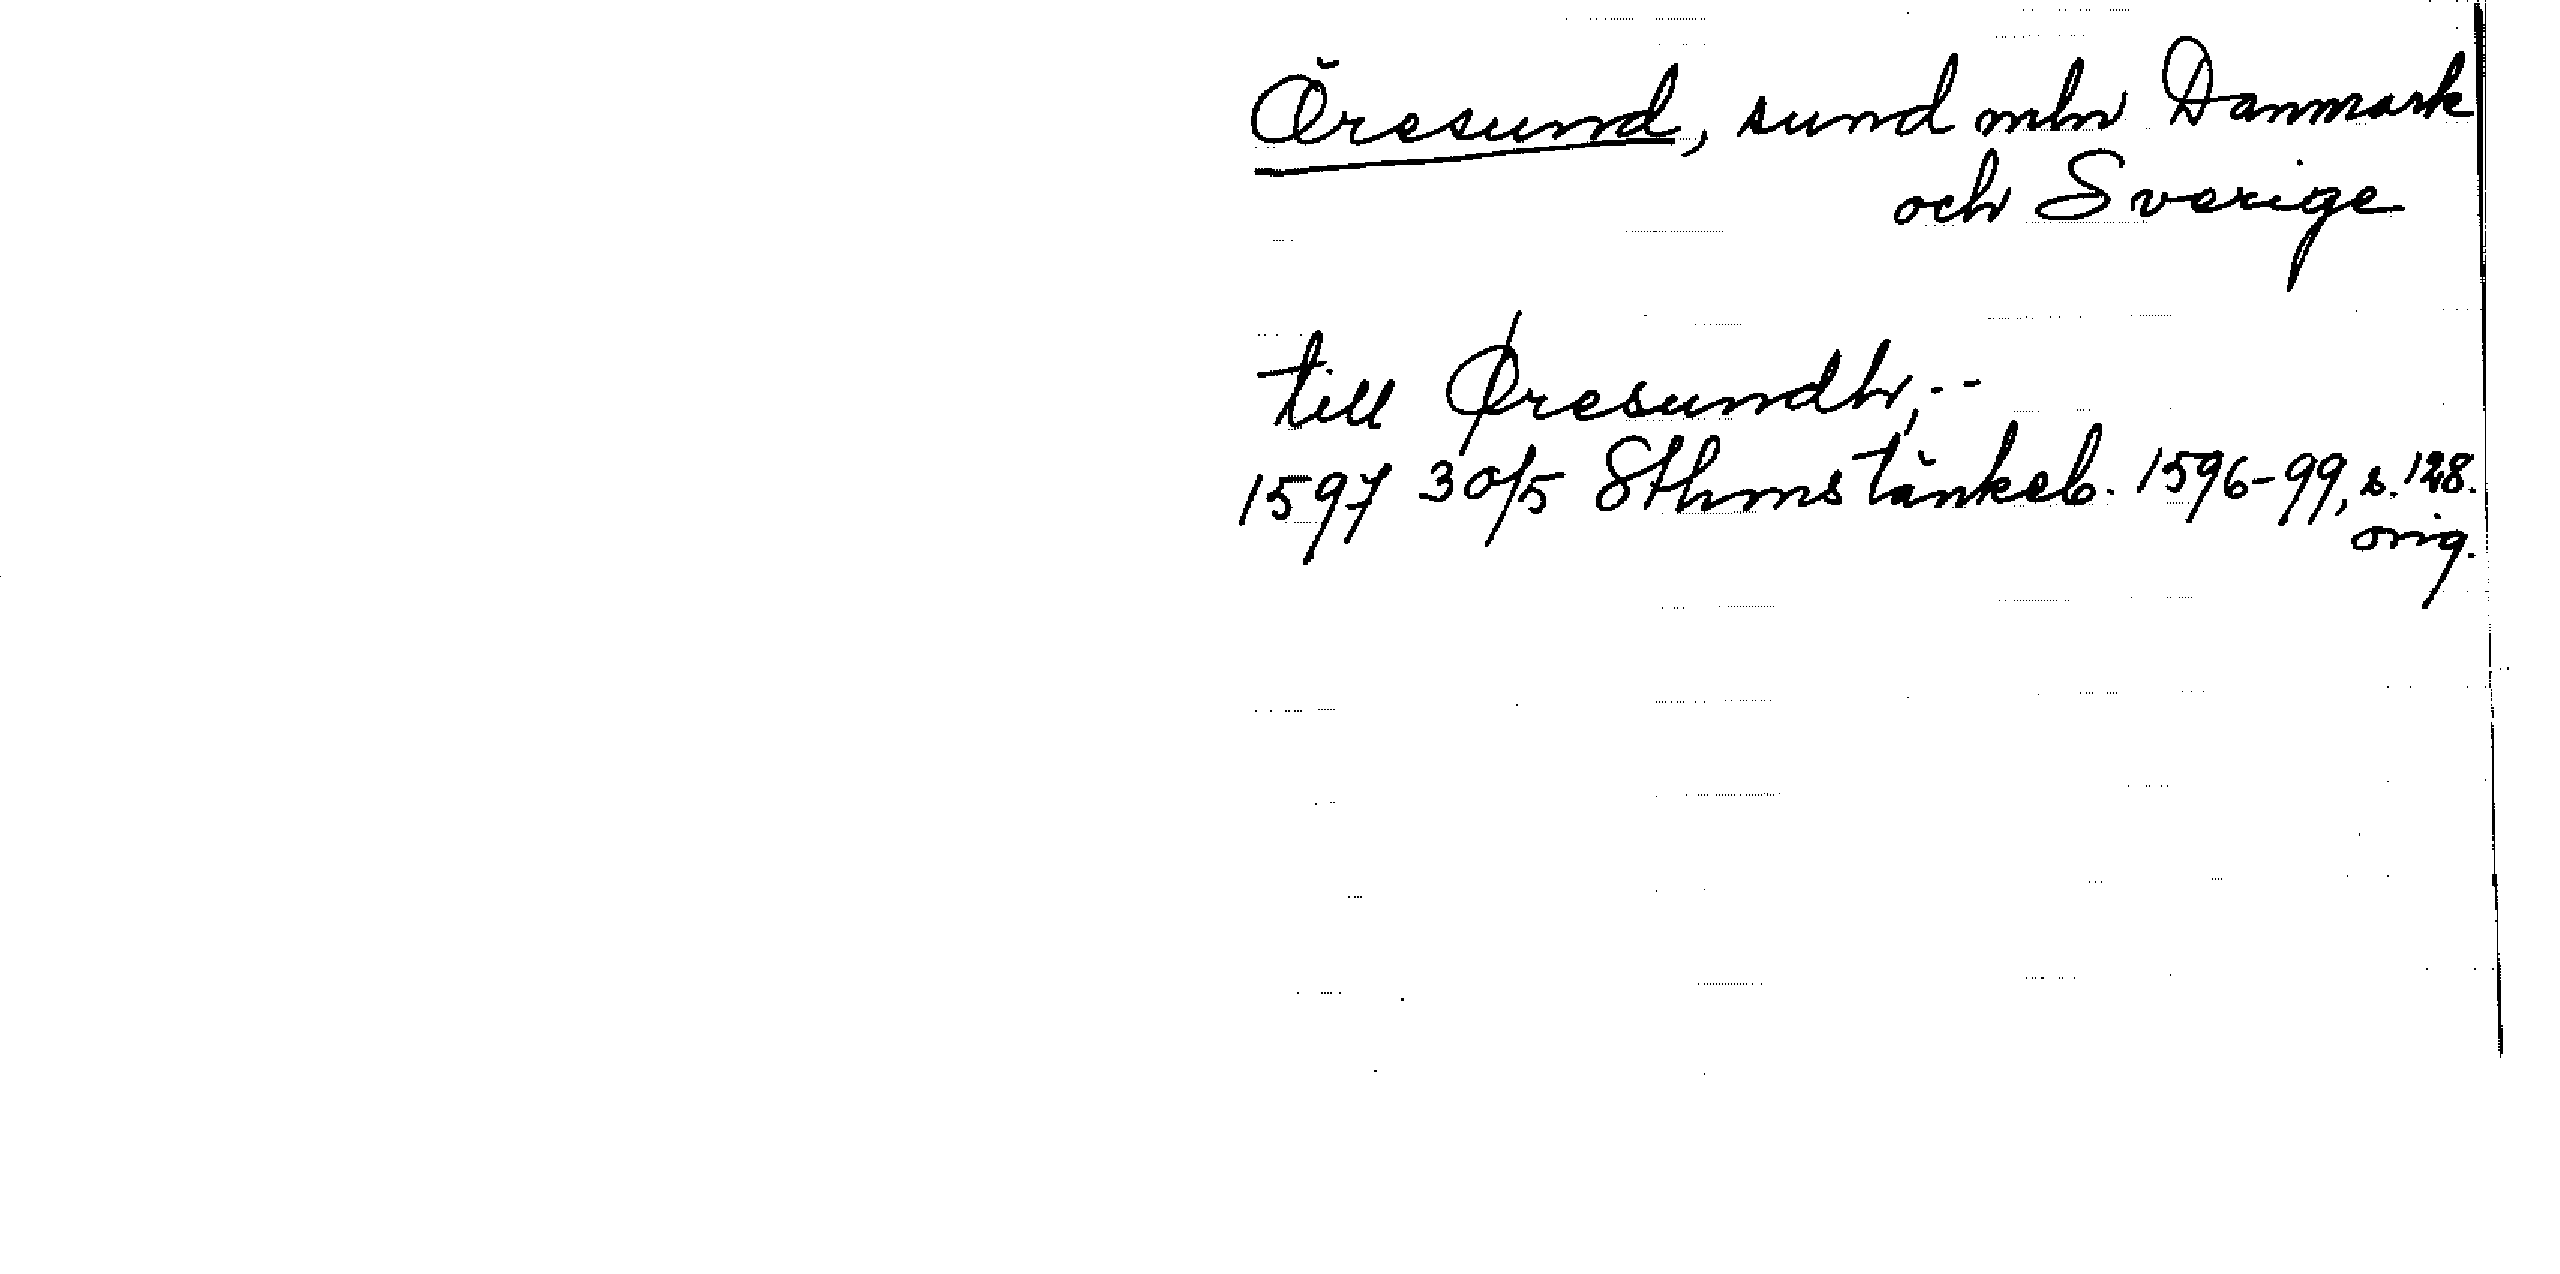 Öresund, sund mln Danmark
och Sverige
till Øresundh, --
1597 30/5 Sthms tänkeb. 1596-99, s. 128.
orig.